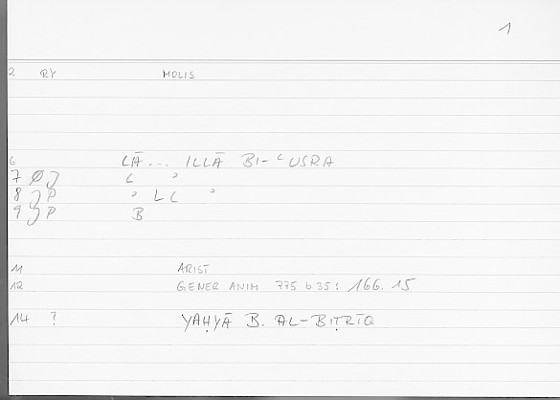 1
2 RY MOLIS
6 LĀ... ILLĀ BI-ʿUSRA
7 Ø J L "
8 J P " L L "
9 J P B
11 ARIST
12 GENER ANIM 775 b 35: 166.15
14 ? YAḤYĀ B. AL-BIṬRĪQ